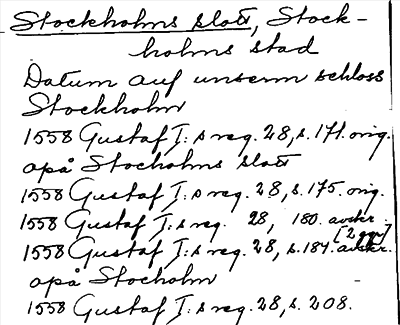 Stockholms slott, Stock-
holms stad
Datum auf unserm schloss
Stockholm
1558 Gustaf I:s reg. 28, s. 171. orig.
apå Stocholms slott
1558 Gustaf I:s reg. 28, s. 175. orig.
1558 Gustaf I:s reg. 28, 180. avskr.
[2 ggr]
1558 Gustaf I:s reg. 28, s. 187. avskr.
apå Stocholm
1558 Gustaf I:s reg. 28, s. 208.